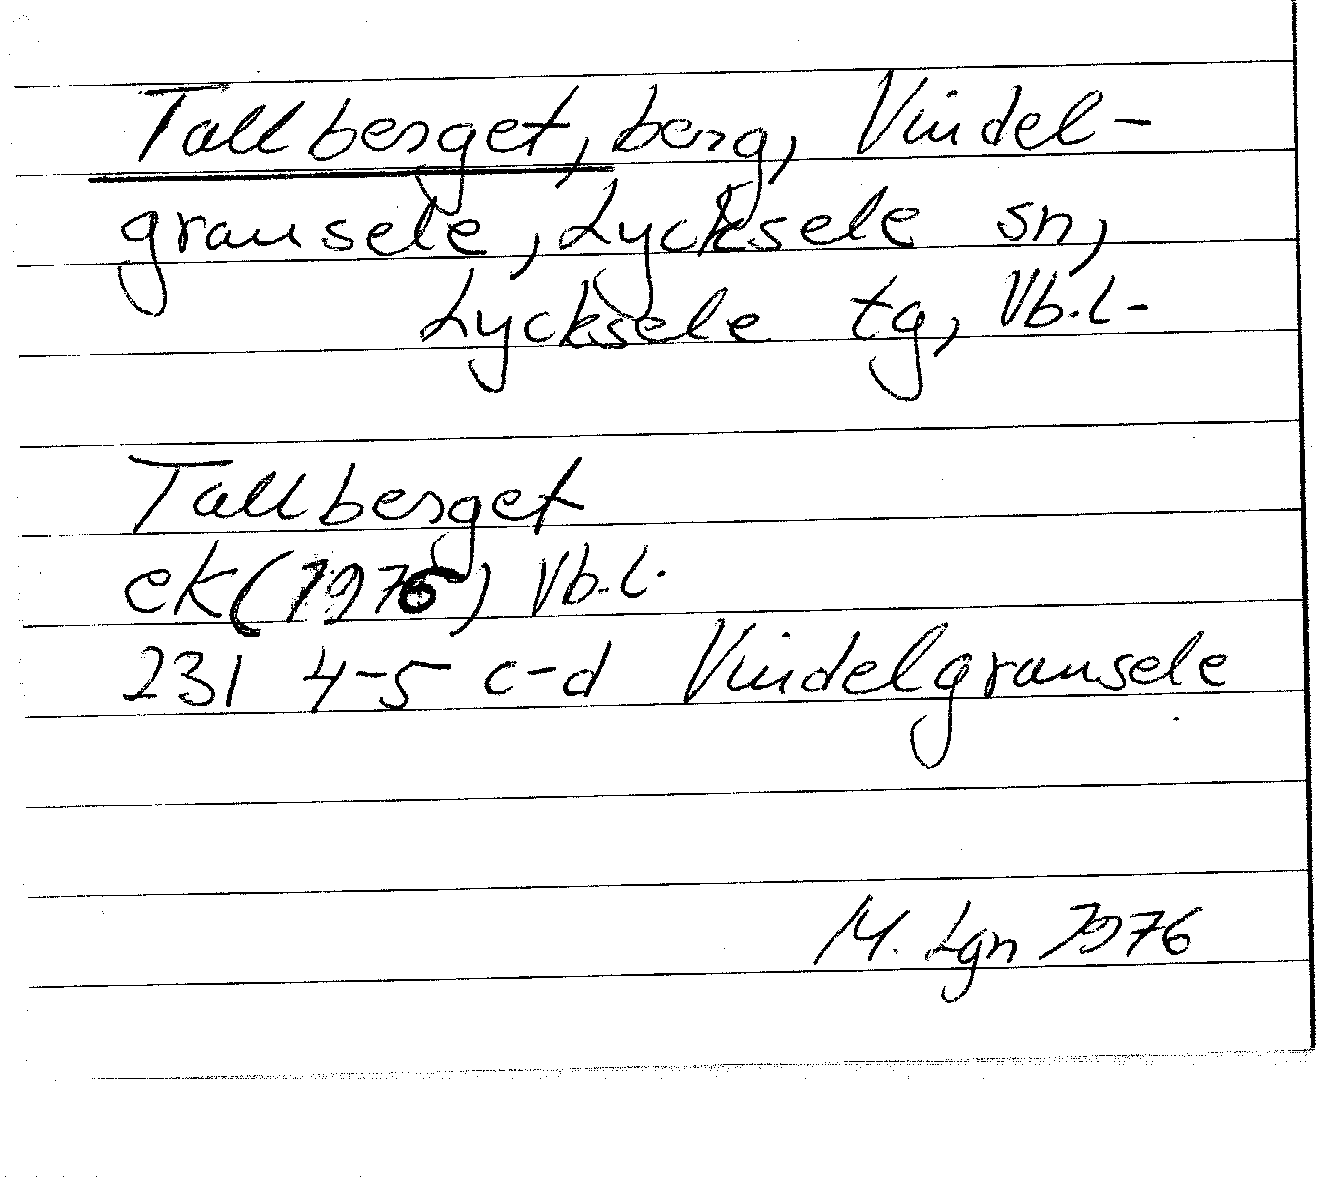 Tallberget, berg, Vindel-
gransele, Lycksele sn,
Lycksele tg, Vb.l.
Tallberget
ek (1976) Vb.l.
231 4-5 c-d Vindelgransele
M. Lgn 1976